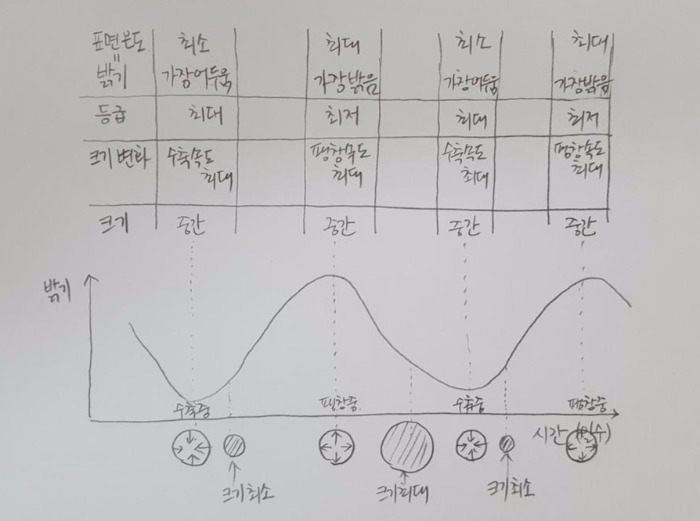 표면온도 최소 최대 최소 최대
=
밝기 가장어두움 가장밝음 가장어두움 가장밝음
등급 최대 최저 최대 최저
크기 변화 수축속도 팽창속도 수축속도 팽창속도
최대 최대 최대 최대
크기 중간 중간 중간 중간
밝기
수축중 팽창중 수축중 팽창중
시간
크기최소 크기최대 크기최소